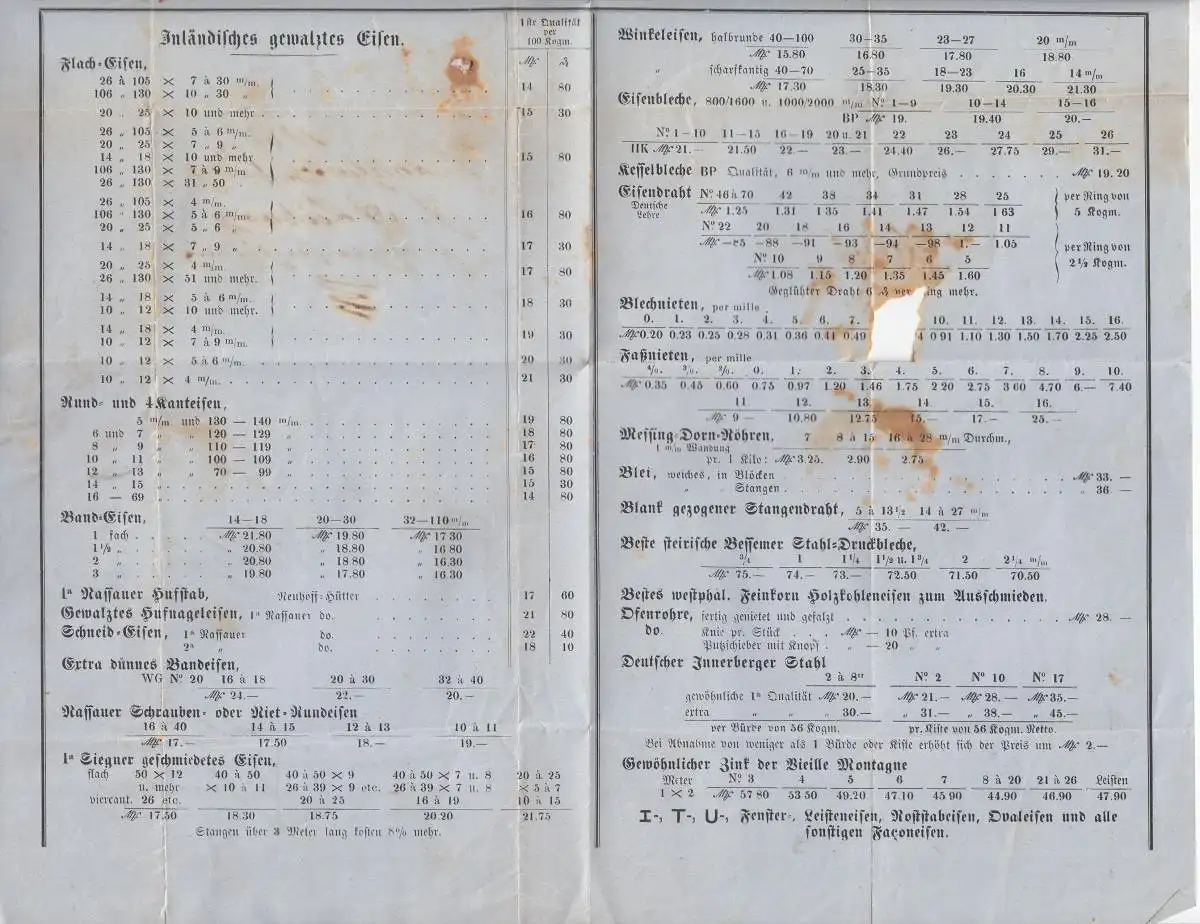 Inländisches gewalztes Eisen.
1ste Qualität
per
100 Kogm.
Flach-Eisen, Mk ₰
26 à 105 × 7 à 30 m/m.
106 „ 130 × 10 „ 30 „ 14 80
20 „ 25 × 10 und mehr 15 30
26 „ 105 × 5 à 6 m/m.
20 „ 25 × 7 „ 9 „
14 „ 18 × 10 und mehr 15 80
106 „ 130 × 7 à 9 m/m
26 „ 130 × 31 „ 50
26 „ 105 × 4 m/m.
106 „ 130 × 5 à 6 m/m 16 80
20 „ 25 × 5 „ 6 „
14 „ 18 × 7 „ 9 „ 17 30
20 „ 25 × 4 m/m.
26 „ 130 × 51 und mehr. 17 80
14 „ 18 × 5 à 6 m/m.
10 „ 12 × 10 und mehr. 18 30
14 „ 18 × 4 m/m.
10 „ 12 × 7 à 9 m/m. 19 30
10 „ 12 × 5 à 6 m/m 20 30
10 „ 12 × 4 m/m. 21 30
Rund- und 4Kanteisen,
5 m/m und 130 — 140 m/m. 19 80
6 und 7 „ „ 120 — 129 „ 18 80
8 „ 9 „ „ 110 — 119 „ 17 80
10 „ 11 „ „ 100 — 109 „ 16 80
12 „ 13 „ „ 70 — 99 „ 15 80
14 „ 15 „ 15 30
16 — 69 14 80
Band-Eisen, 14—18 20—30 32—110 m/m.
1 fach Mk 21.80 Mk 19.80 Mk 17 30
1 1/2 „ „ 20.80 „ 18.80 „ 16 80
2 „ „ 20.80 „ 18 80 „ 16.30
3 „ „ 19.80 „ 17.80 „ 16 30
1a Nassauer Hufstab, Neuhoff-Hütter 17 60
Gewalztes Hufnageleisen, 1a Nassauer do. 21 80
Schneid-Eisen, 1a Nassauer do. 22 40
2a „ do. 18 10
Extra dünnes Bandeisen,
WG No 20 16 à 18 20 à 30 32 à 40
Mk 24.— 22.— 20.—
Nassauer Schrauben- oder Niet-Rundeisen
16 à 40 14 à 15 12 à 13 10 à 11
Mk 17.— 17.50 18.— 19.—
1a Siegner geschmiedetes Eisen,
flach 50 × 12 40 à 50 40 à 50 × 9 40 à 50 × 7 u. 8 20 à 25
u. mehr × 10 à 11 26 à 39 × 9 etc. 26 à 39 × 7 u. 8 × 5 à 7
viercant. 26 etc. 20 à 25 16 à 19 10 à 15
Mk 17.50 18.30 18.75 20.20 21.75
Stangen über 3 Meter lang kosten 8% mehr.
Winkeleisen, halbrunde 40—100 30—35 23—27 20 m/m
Mk 15.80 16.80 17.80 18.80
„ scharfkantig 40—70 25—35 18—23 16 14 m/m
Mk 17.30 18.30 19.30 20.30 21.30
Eisenbleche, 800/1600 u. 1000/2000 m/m No 1—9 10—14 15—16
BP Mk 19. 19.40 20.—
No 1—10 11—15 16—19 20 u. 21 22 23 24 25 26
HK Mk 21.— 21.50 22.— 23.— 24.40 26.— 27.75 29.— 31.—
Kesselbleche BP Qualität, 6 m/m und mehr, Grundpreis Mk 19.20
Eisendraht No 46 à 70 42 38 34 31 28 25 per Ring von
Deutsche Lehre Mk 1.25 1.31 1 35 1.41 1.47 1.54 1 63 5 Kogm.
No 22 20 18 16 14 13 12 11
Mk —85 —88 —91 —93 —94 —98 1.— 1.05 per Ring von
No 10 9 8 7 6 5 2 1/2 Kogm.
Mk 1.08 1.15 1.20 1.35 1.45 1.60
Geglühter Draht 6 ₰ per Ring mehr.
Blechnieten, per mille
0. 1. 2. 3. 4. 5. 6. 7. 10. 11. 12. 13. 14. 15. 16.
Mk 0.20 0.23 0.25 0.28 0.31 0.36 0.41 0.49 4 0 91 1.10 1.30 1.50 1.70 2.25 2.50
Faßnieten, per mille
4/0. 3/0. 2/0. 0. 1. 2. 3. 4. 5. 6. 7. 8. 9. 10.
Mk 0.35 0.45 0.60 0.75 0.97 1.20 1.46 1.75 2 20 2.75 3 60 4.70 6.— 7.40
11 12. 13. 14. 15. 16.
Mk 9 — 10.80 12.75 15.— 17.— 25.—
Messing-Dorn-Röhren, 7 8 à 15 16 à 28 m/m Durchm.,
1 m/m Wandung
pr. 1 Kilo: Mk 3.25. 2.90 2.75
Blei, weiches, in Blöcken Mk 33. —
„ „ Stangen „ 36 —
Blank gezogener Stangendraht, 5 à 13 1/2 14 à 27 m/m
Mk 35. — 42. —
Beste steirische Bessemer Stahl-Druckbleche,
3/4 1 1 1/4 1 1/2 u. 1 3/4 2 2 1/4 m/m
Mk 75.— 74.— 73.— 72.50 71.50 70.50
Bestes westphal. Feinkorn Holzkohleneisen zum Ausschmieden.
Ofenrohre, fertig genietet und gefalzt Mk 28. —
do. Knie pr. Stück Mk — 10 Pf. extra
Putzschieber mit Knopf „ — 20 „ „
Deutscher Innerberger Stahl
2 à 8er No 2 No 10 No 17
gewöhnliche 1a Qualität Mk 20.— Mk 21.— Mk 28.— Mk 35.—
extra „ „ „ 30.— „ 31.— „ 38.— „ 45.—
per Bürde von 56 Kogm. pr. Kiste von 56 Kogm. Netto.
Bei Abnahme von weniger als 1 Bürde oder Kiste erhöht sich der Preis um Mk 2.—
Gewöhnlicher Zink der Vieille Montagne
Meter No 3 4 5 6 7 8 à 20 21 à 26 Leisten
1 × 2 Mk 57 80 53 50 49.20 47.10 45 90 44.90 46.90 47.90
I-, T-, U-, Fenster-, Leisteneisen, Roststabeisen, Ovaleisen und alle
sonstigen Façoneisen.